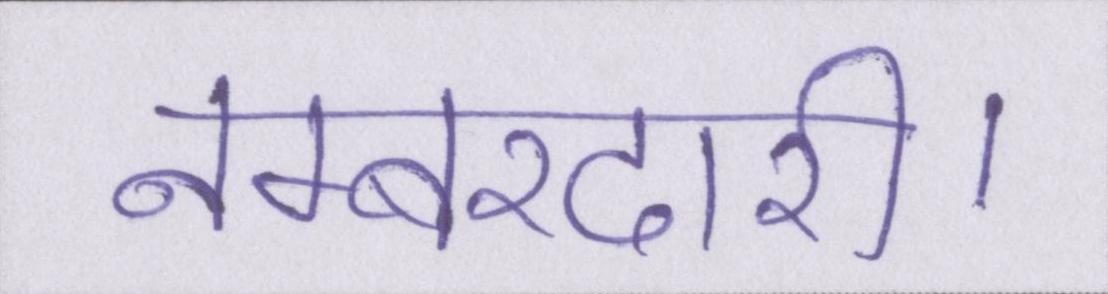 नम्बरदारी।